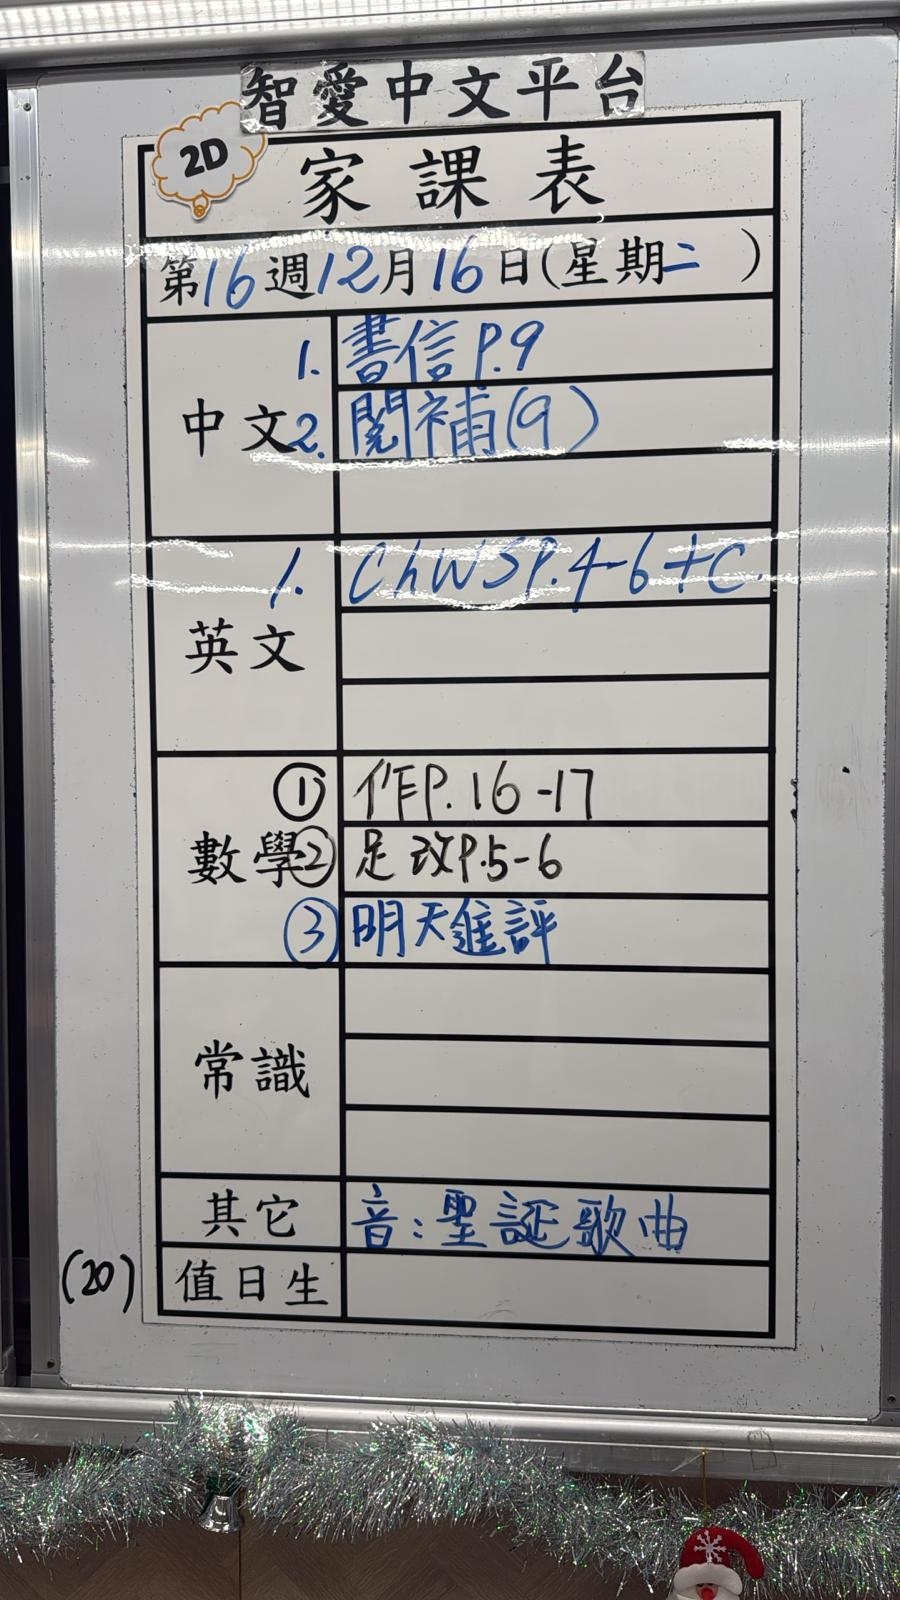 智愛中文平台
2D
家課表
第16週12月16日(星期二 )
中文
1. 書信P.9
2. 閱補(9)
英文
1. ChWSP.4-6+C.
數學
① 作P.16-17
② 足改P.5-6
③ 明天進評
常識
其它
音:聖誕歌曲
(20)
值日生